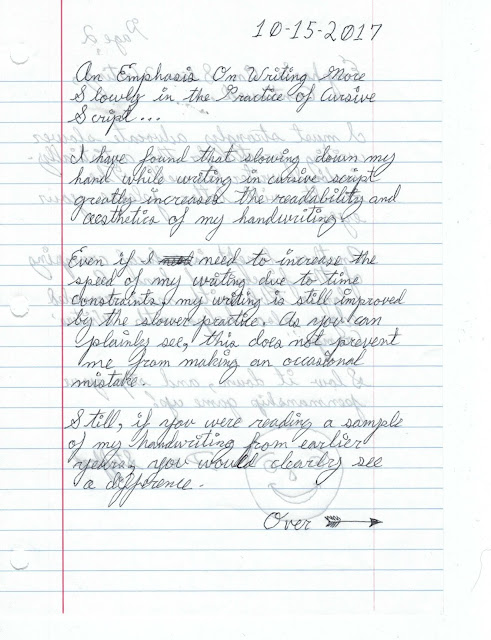 10-15-2017
An Emphasis On Writing More
Slowly in the Practice of Cursive
Script...
I have found that slowing down my
hand while writing in cursive script
greatly increases the readability and
aesthetics of my handwriting.
Even if I need to increase the
speed of my writing due to time
constraints, my writing is still improved
by the slower practice. As you can
plainly see, this does not prevent
me from making an occasional
mistake.
Still, if you were reading a sample
of my handwriting from earlier
years, you would clearly see
a difference.
Over